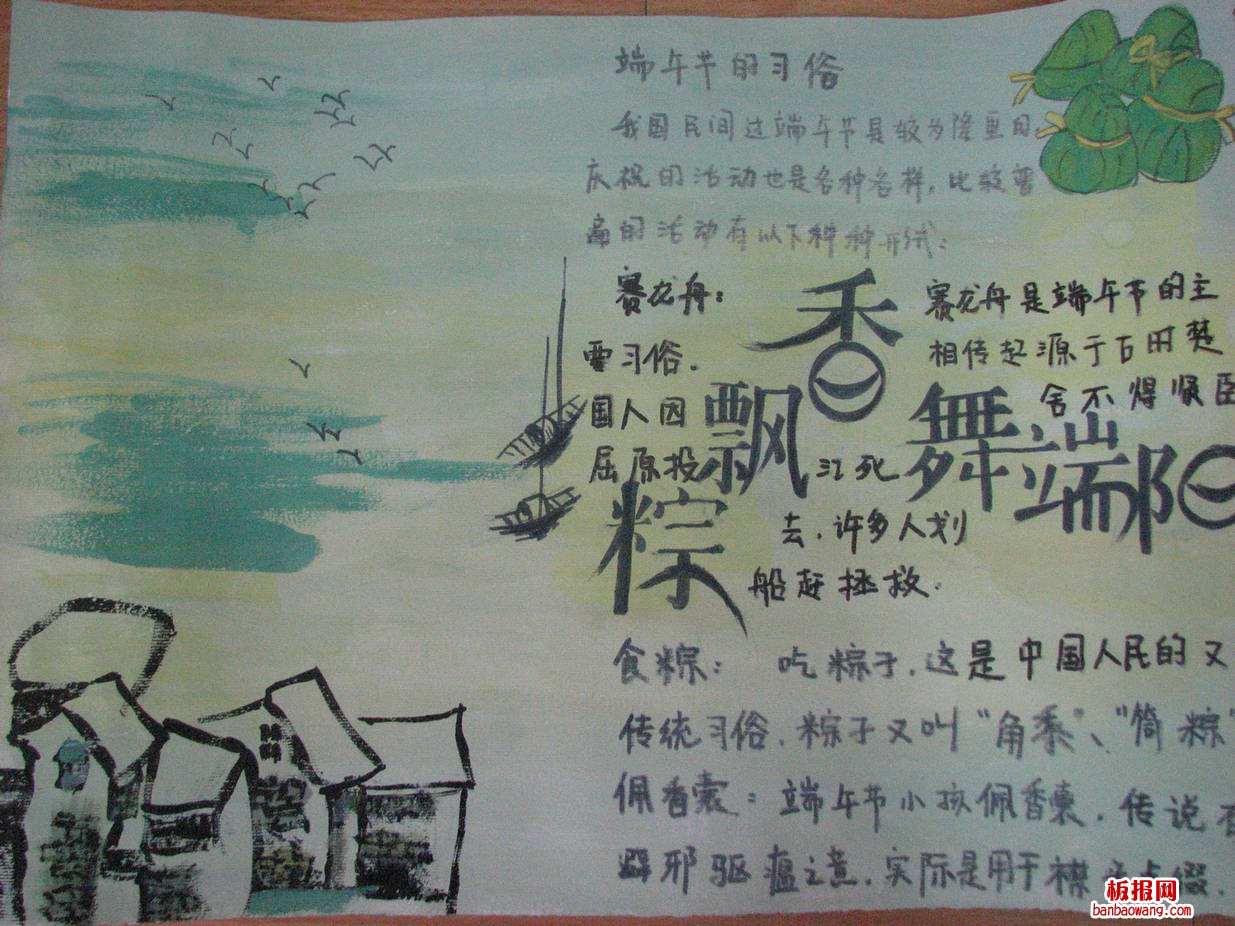 端午节的习俗
我国民间过端午节是较为隆重的
庆祝的活动也是各种各样，比较普
遍的活动有以下种种形式：
赛龙舟： 赛龙舟是端午节的主
要习俗． 相传起源于古时楚
国人因 舍不得贤臣
屈原投 江死
去．许多人划
船赶拯救．
粽香飘 舞端阳
食粽： 吃粽子．这是中国人民的又
传统习俗．粽子又叫“角黍”、“筒粽”
佩香囊：端午节小孩佩香囊．传说有
辟邪驱瘟之意．实际是用于襟 点缀．
板报网
banbaowang.com